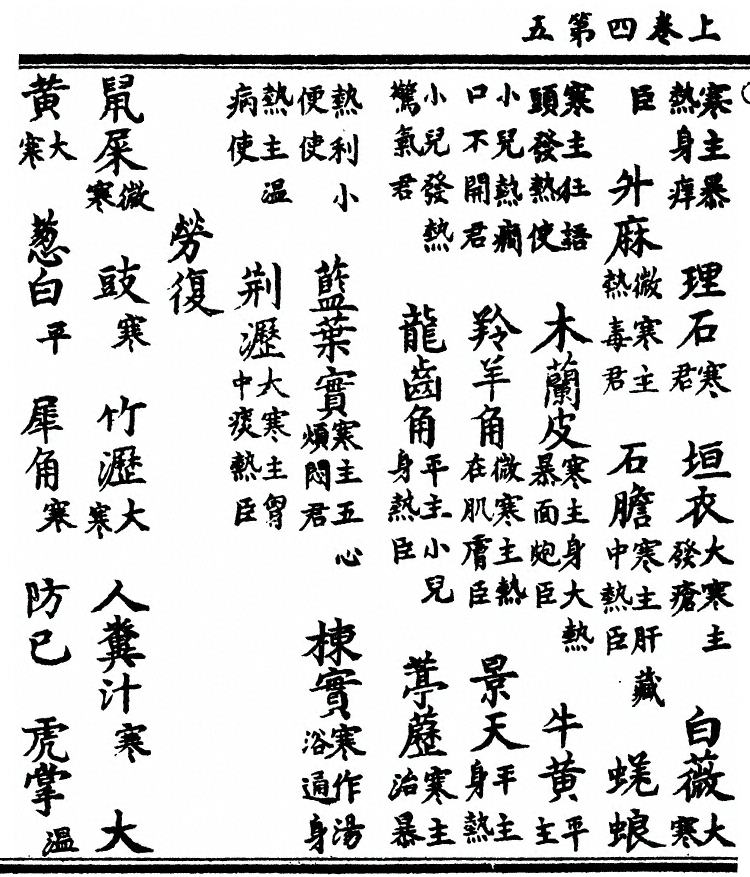 上卷四第五
寒主暴熱身痒 理石寒君 垣衣大寒主發瘡 白薇大寒
臣 升麻微寒主熱毒君 石膽寒主肝藏中熱臣 蜣蜋
寒主狂語頭發熱使 木蘭皮寒主身大熱暴面炮臣 牛黄平主
小兒熱癇口不開君 羚羊角微寒主熱在肌膚臣 景天平主身熱
小兒發熱驚氣君 龍齒角平主小兒身熱臣 葶藶寒主治暴
熱利小便使 藍葉實寒主五心煩悶君 楝實寒作湯浴通身
熱主温病使 荆瀝大寒主胷中痰熱臣
勞復
鼠屎微寒 豉寒 竹瀝大寒 人糞汁寒 大
黄大寒 葱白平 犀角寒 防已 虎掌温